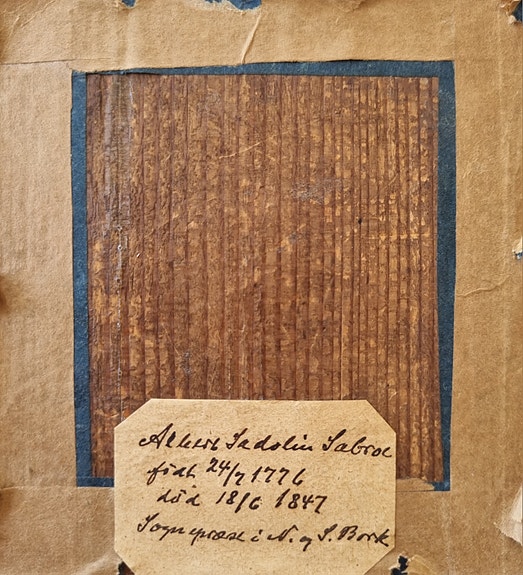 Albert Sadolin Sabroe
födt 24/7 1776
död 18/6 1847
Sognepræst i N. og S. Bork